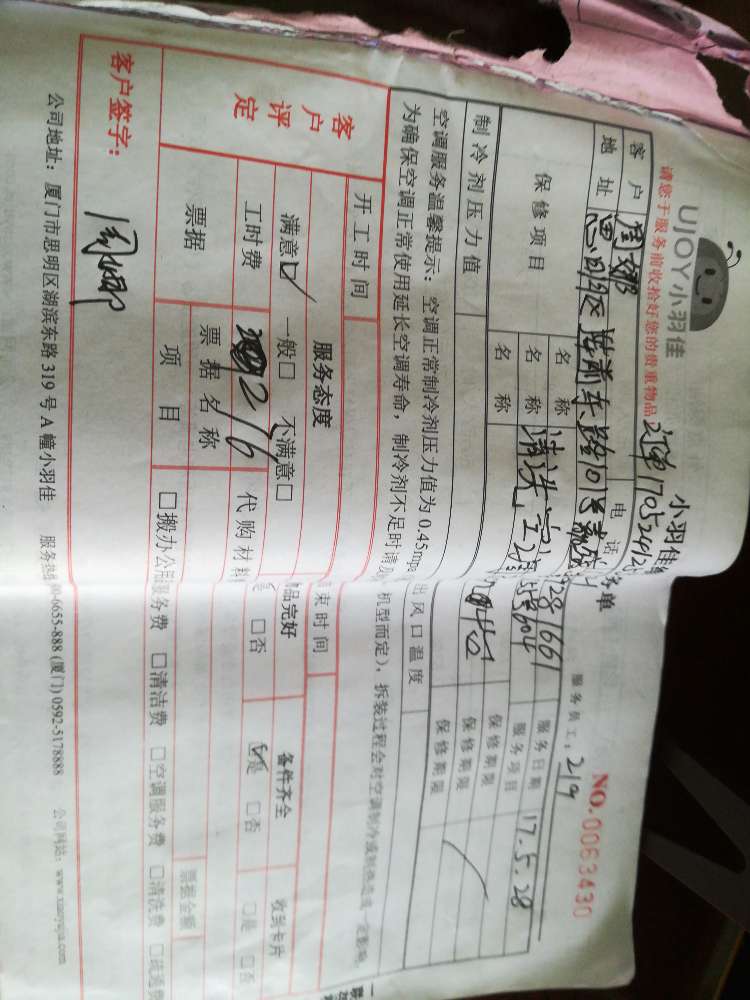 UJOY小羽佳
小羽佳
单
NO.0063430
请您于服务前收拾好您的贵重物品
服务员工: 219
客户
电话
1661
服务日期
17.5.28
地址
思明区
前东路101号
604
服务项目
保修项目
名称
保修期限
名称
清洗空调
保修期限
名称
保修期限
制冷剂压力值
出风口温度
空调服务温馨提示: 空调正常制冷剂压力值为0.45mpa
机型而定), 拆装过程会对空调制冷或制热造成一定影响。
为确保空调正常使用延长空调寿命, 制冷剂不足时请
客户评定
开工时间
束时间
服务态度
品完好
备件齐全
收到卡片
满意☑ 一般□ 不满意□
□否
☑是 □否
□是 □否
工时费
216
代购材料
票据
票据名称
票据金额
项目
□搬办公 服务费 □清洁费 □空调服务费 □清洗费
客户签字:
周娜
公司地址: 厦门市思明区湖滨东路319号A幢小羽佳 服务热 00-6655-888 (厦门) 0592-5178888 公司网站: www.xiaoyujia.com